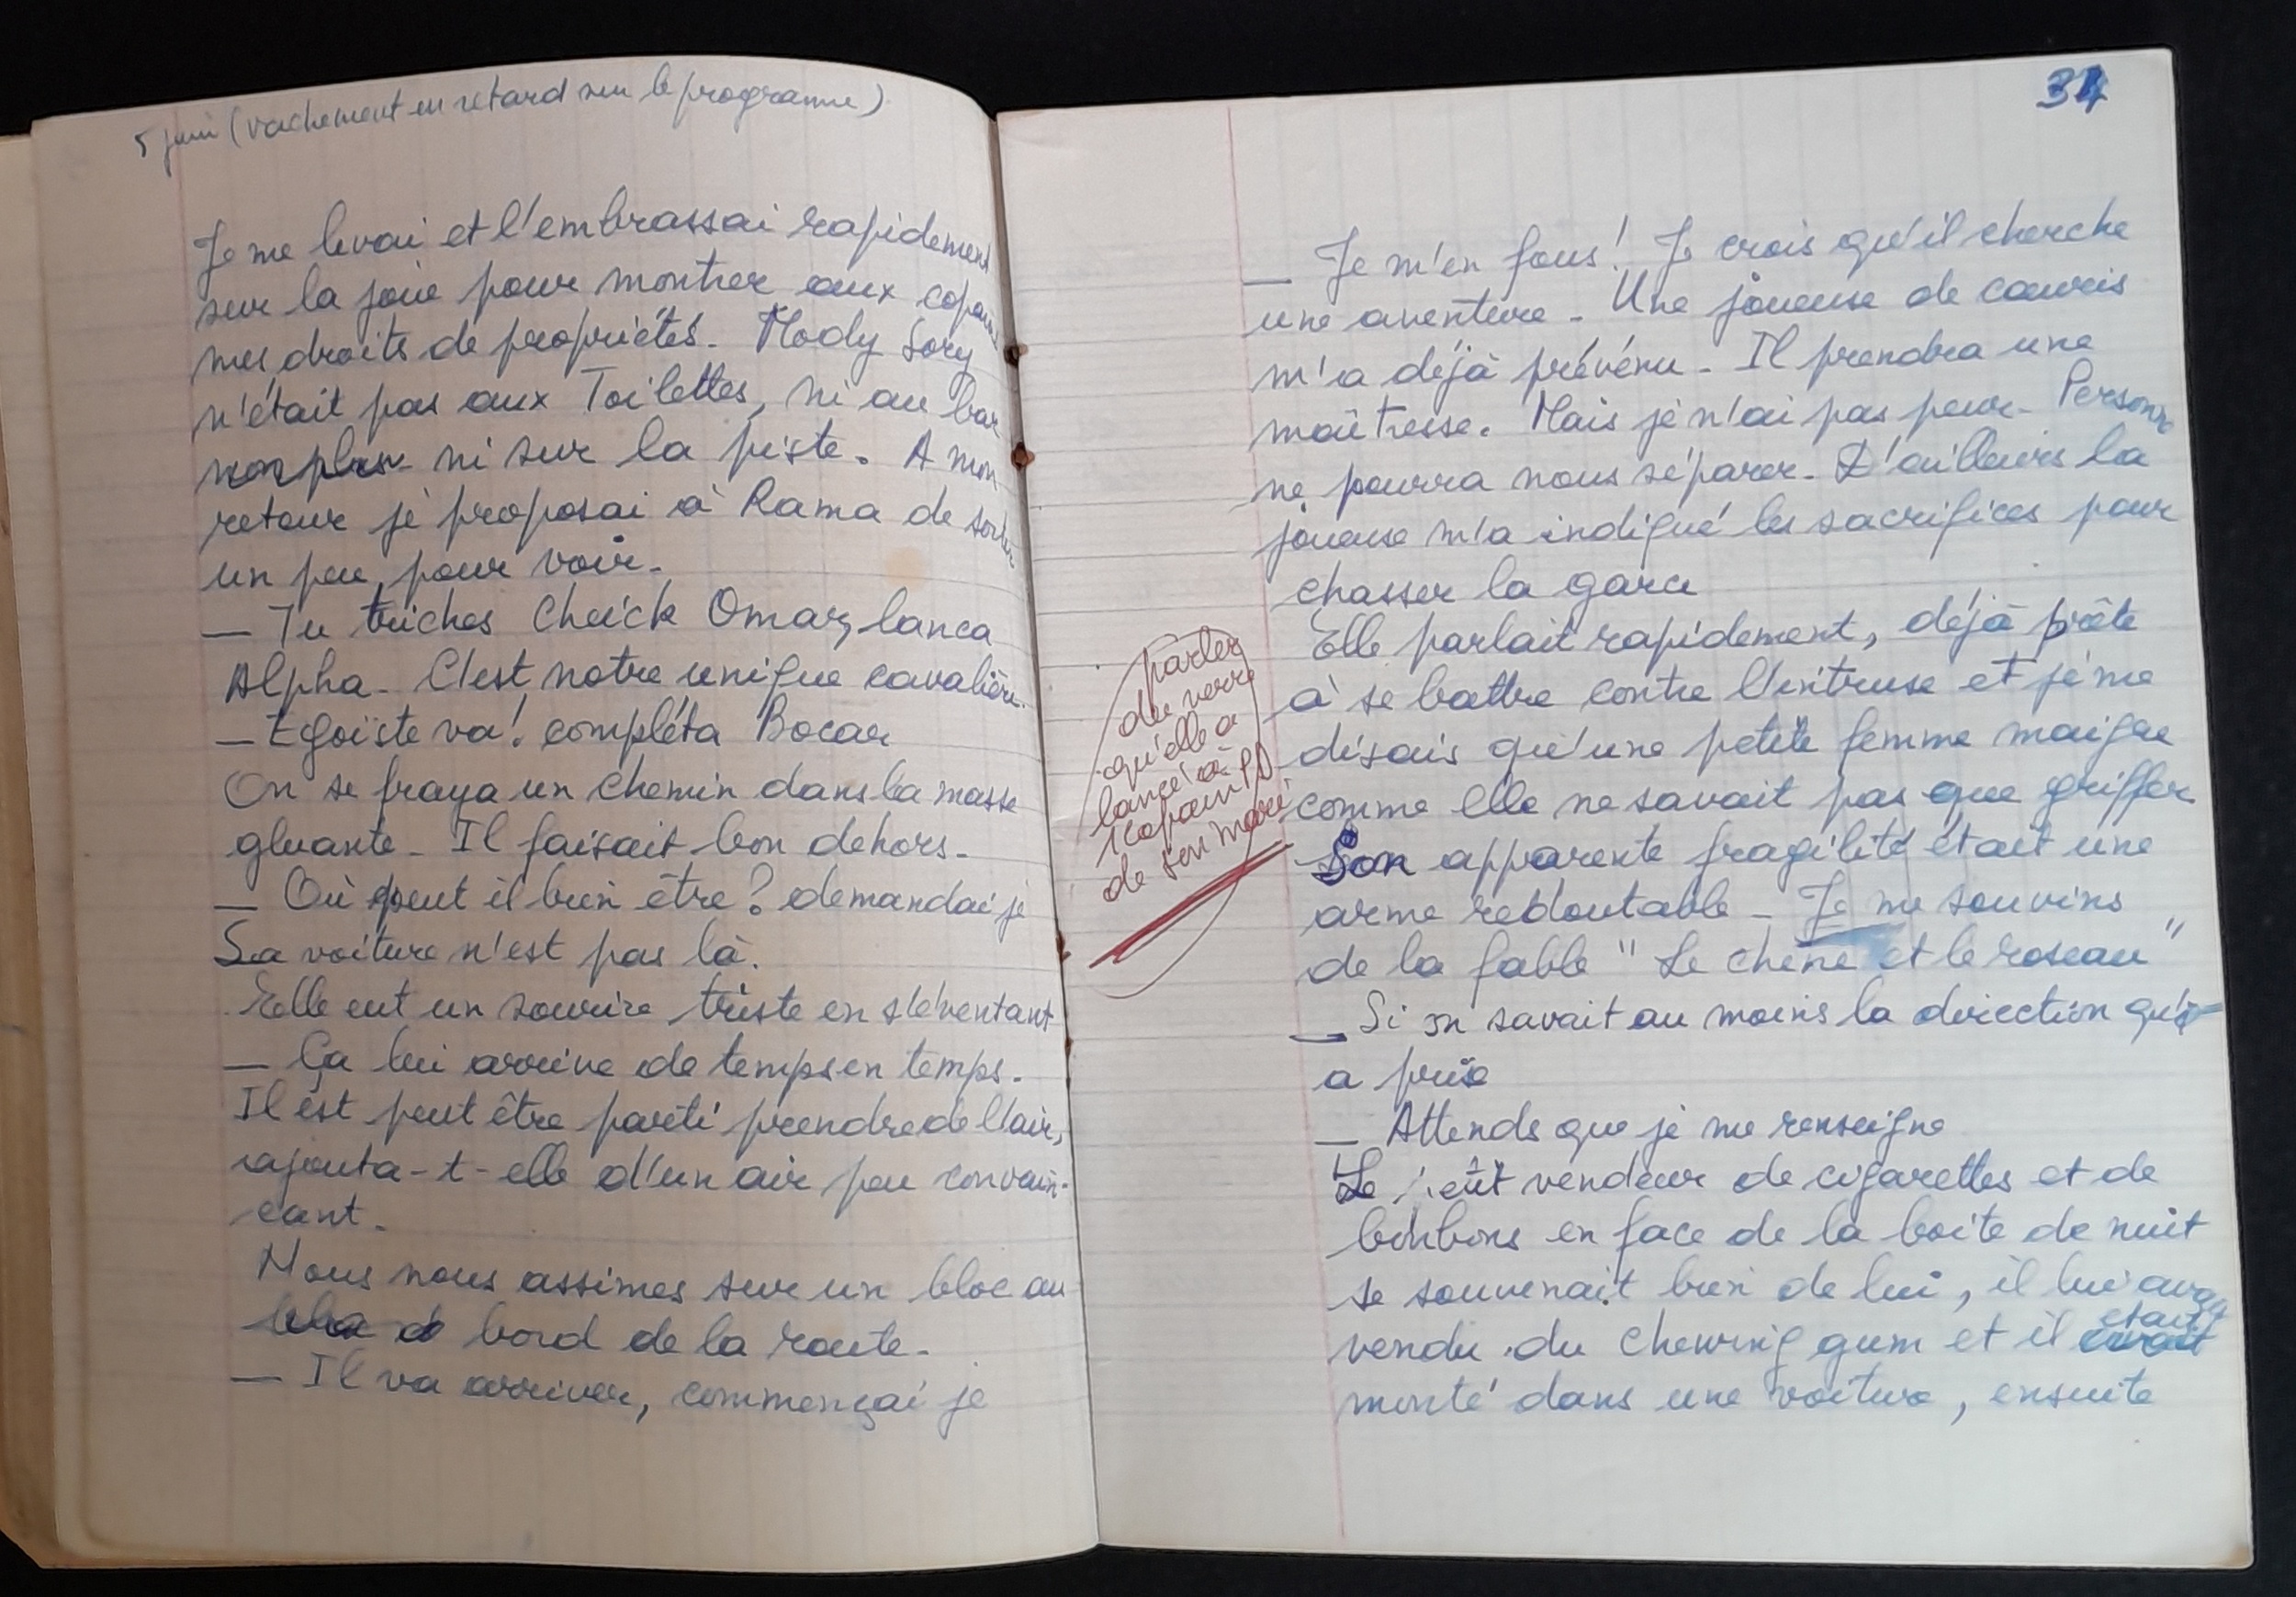 5 juin (vachement en retard sur le programme)
Je me levai et l'embrassai rapidement
sur la joue pour montrer aux copains
mes droits de propriétés. Mody Sory
n'était pas aux Toilettes, ni au bar
non plus ni sur la piste. A mon
retour je proposai à Rama de sortir
un peu, pour voir.
— Tu triches Cheick Omar, lanca
Alpha. C'est notre unique cavalière.
— Egoïste va! compléta Bocar
On se fraya un chemin dans la masse
gluante. Il faisait bon dehors.
— Où peut il bien être? demandai je
Sa voiture n'est pas là.
Elle eut un sourire triste en s'éventant
— Ça lui arrive de temps en temps.
Il est peut être parti prendre de l'air,
rajouta-t-elle d'un air peu convain-
cant.
Nous nous assimes sur un bloc au
bord de la route.
— Il va arriver, commençai je
34
— Je m'en fous! Je crois qu'il cherche
une aventure. Une joueuse de cauris
m'a déjà prévénu. Il prendra une
maîtresse. Mais je n'ai pas peur. Personne
ne pourra nous séparer. D'ailleurs la
joueuse m'a indiqué les sacrifices pour
chasser la garce
Elle parlait rapidement, déjà prête
à se battre contre l'intruse et je me
disais qu'une petite femme maigre
comme elle ne savait pas que griffer.
Son apparente fragilité était une
arme redoutable. Je me souvins
de la fable "Le chêne et le roseau"
— Si on savait au moins la direction qu'il
a prise
— Attends que je me renseigne
Le petit vendeur de cigarettes et de
bonbons en face de la boite de nuit
se souvenait bien de lui, il lui avait
vendu du chewing gum et il était
monté dans une voiture, ensuite
parler
du verre
qu'elle a
lancé à
1 copain
de son mari